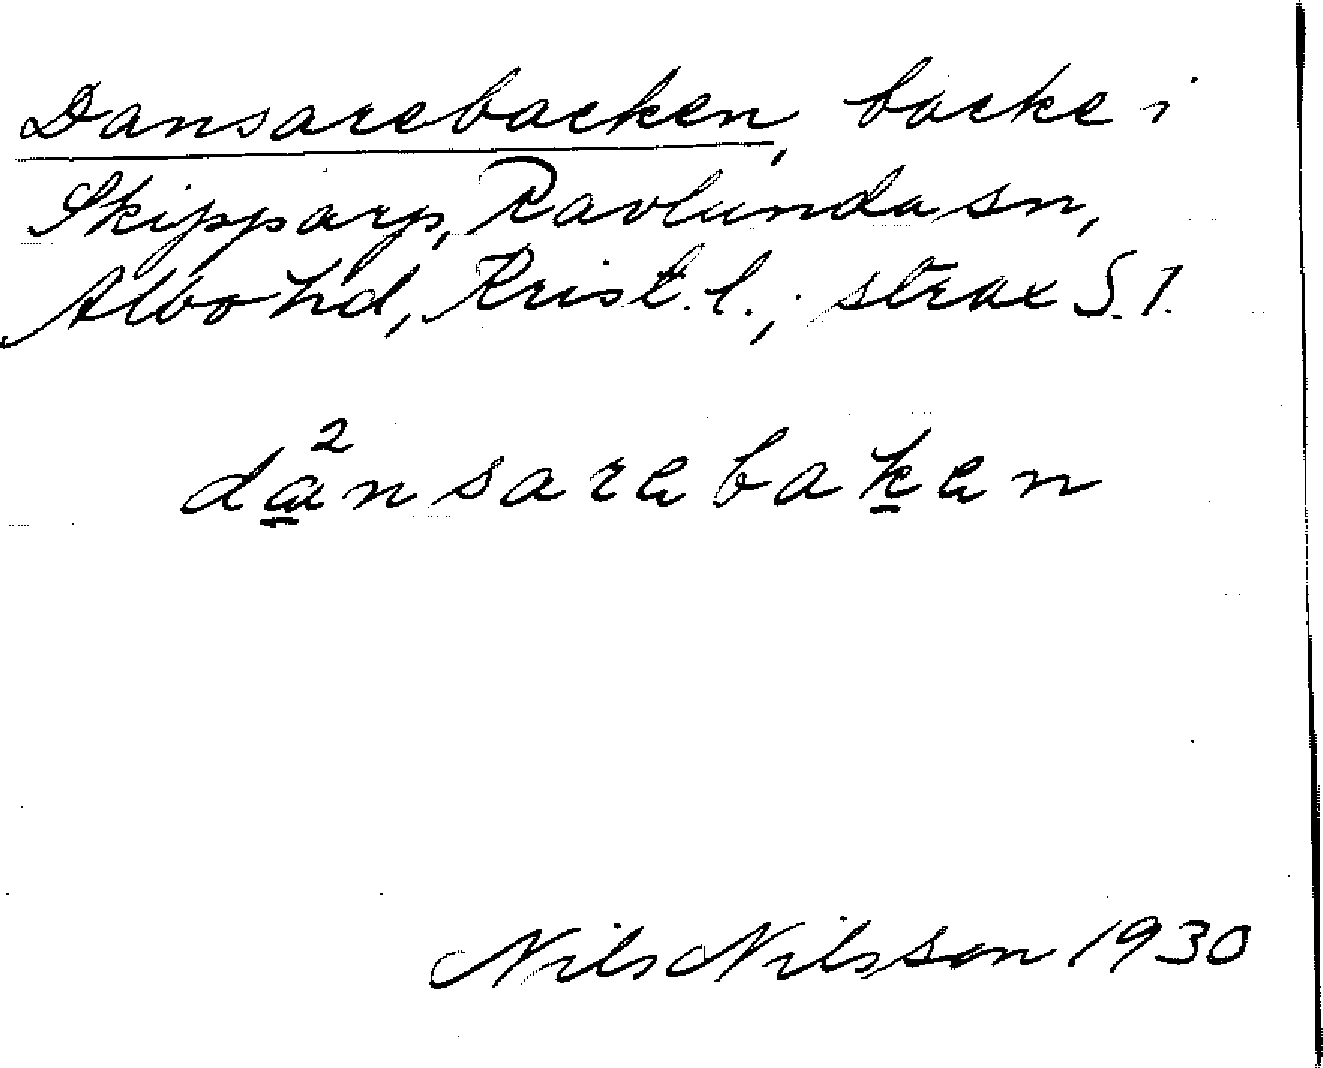 Dansarebacken, backe i
Skipparp, Ravlunda sn,
Albo hd, Krist. l.; strax S. I.
2
dansarebaken
Nils Nilsson 1930